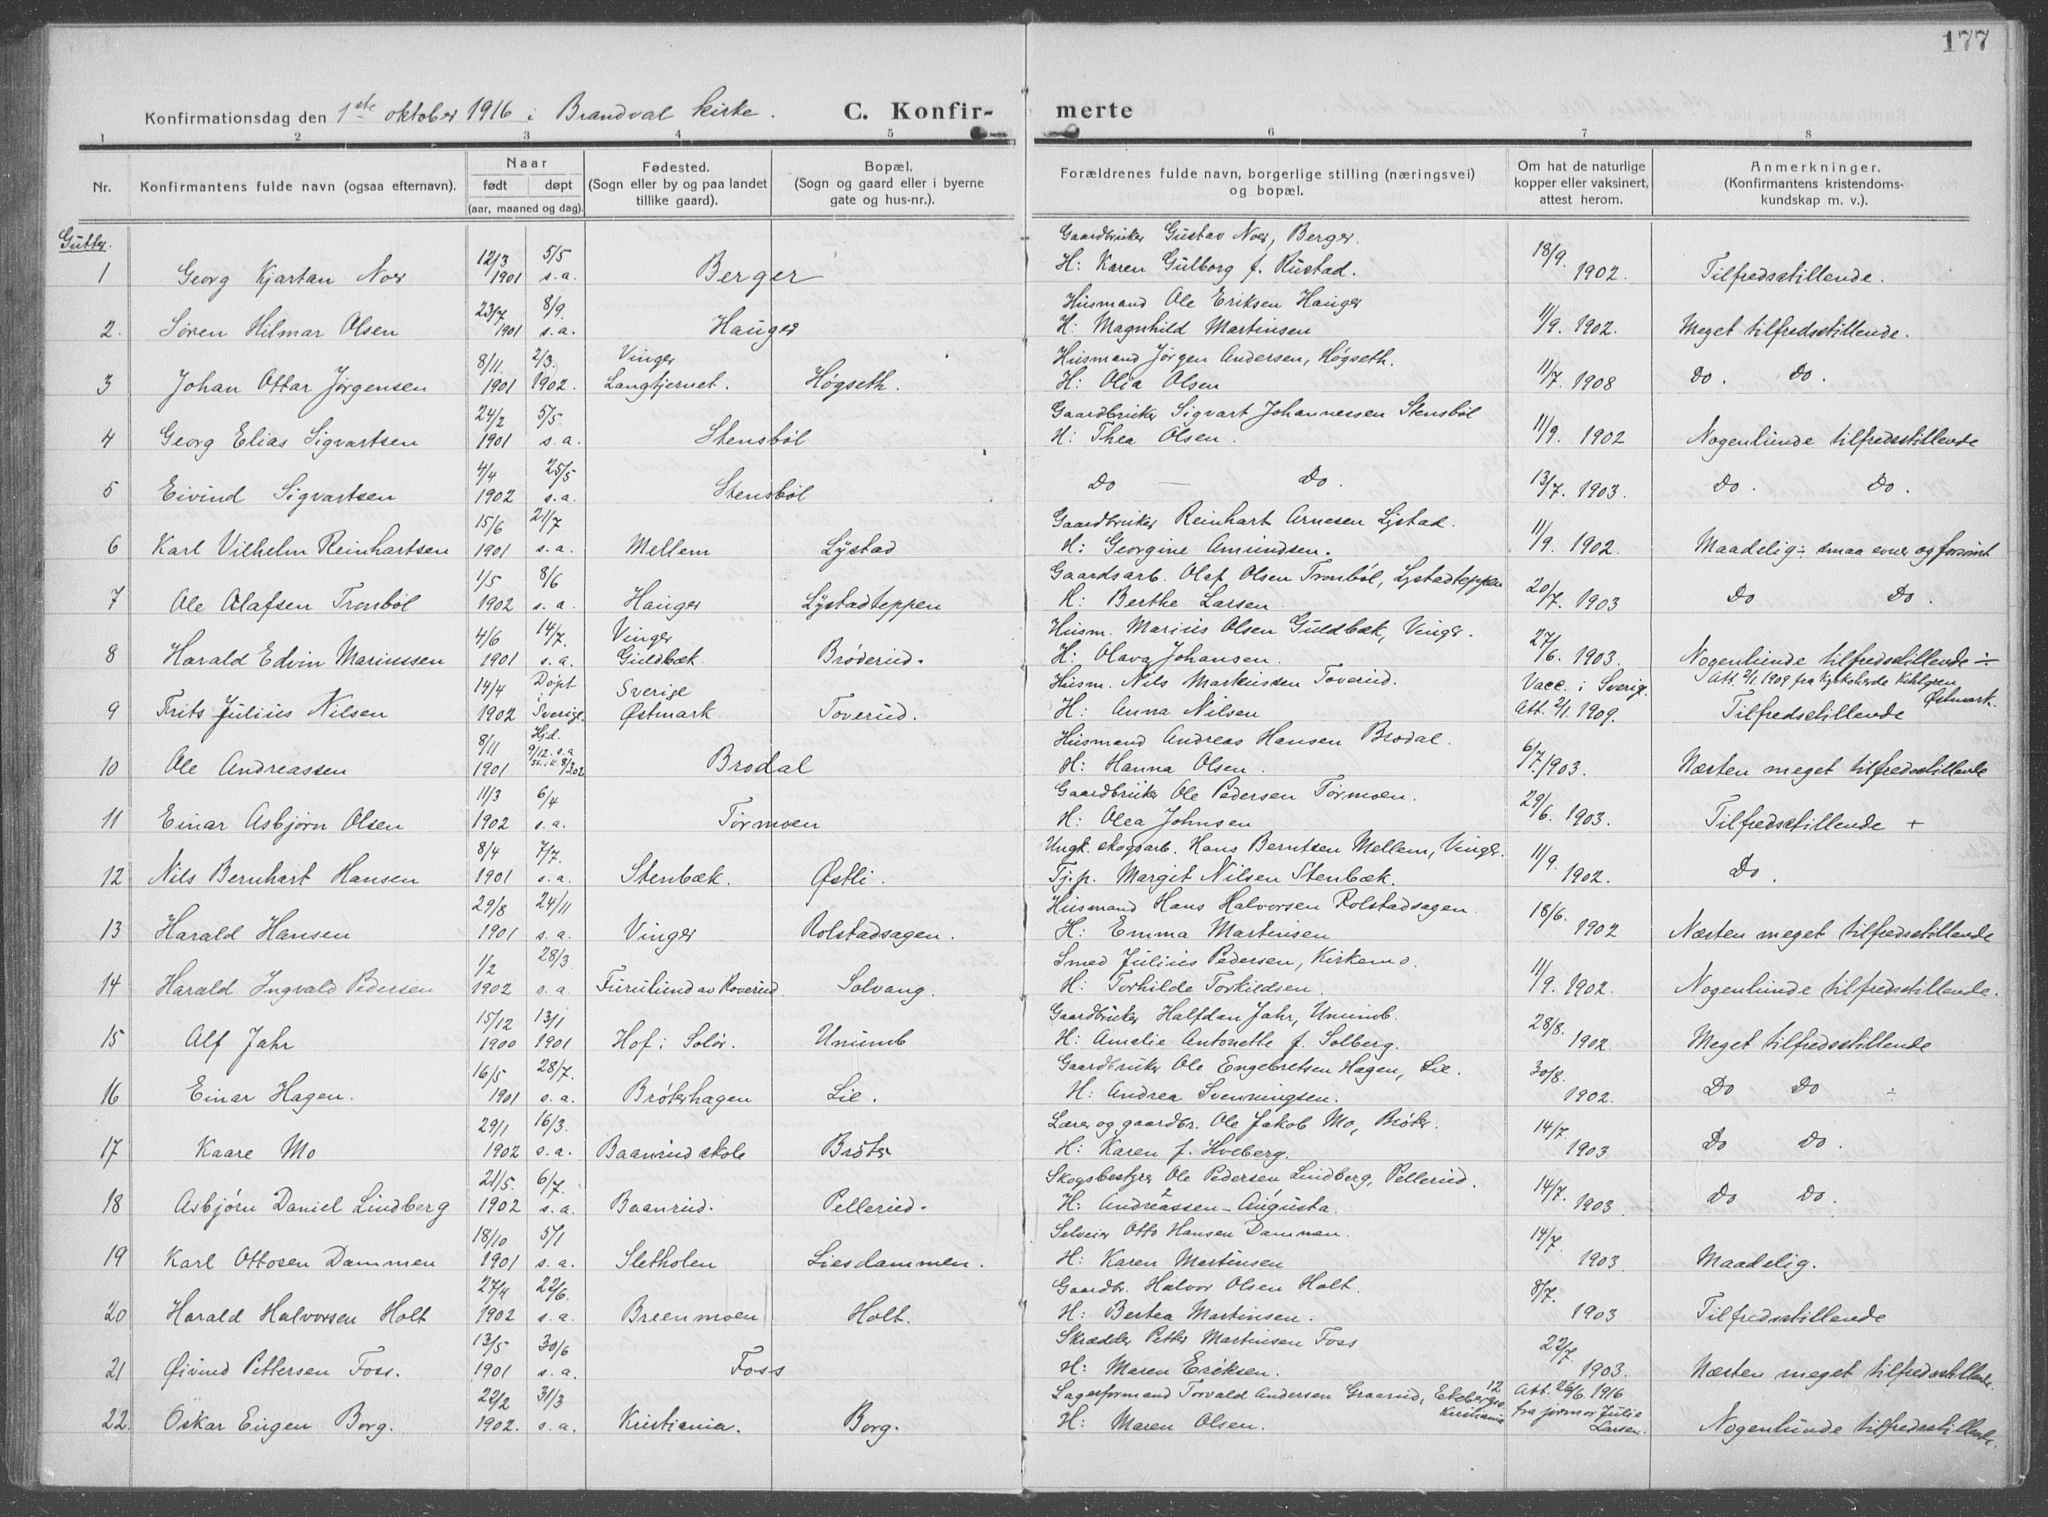 177
Konfirmationsdag den 1ste oktober 1916 i Brandval kirke. C. Konfir- merte
1 2 3 4 5 6 7 8
Nr. Konfirmantens fulde navn (ogsaa efternavn). Naar født døpt (aar, maaned og dag). Fødested. (Sogn eller by og paa landet tillike gaard). Bopæl. (Sogn og gaard eller i byerne gate og hus-nr.). Forældrenes fulde navn, borgerlige stilling (næringsvei) og bopæl. Om hat de naturlige kopper eller vaksinert, attest herom. Anmerkninger. (Konfirmantens kristendoms- kundskap m. v.).
Gutter.
12/3 5/5 Gaardbruker Gustav Noer, Berger. 18/9.
1 Georg Kjartan Noer 1901 s.a. Berger H: Karen Gulborg f. Rustad. 1902. Tilfredsstillende.
23/7 8/9. Husmand Ole Eriksen Hauger
2. Søren Hilmar Olsen 1901 s.a. Hauger H: Magnhild Martinsen 11/9. 1902. Meget tilfredsstillende.
8/11. 2/3. Vinger Husmand Jörgen Andersen, Högseth.
3 Johan Ottar Jørgensen 1901 1902. Langtjernet. Høgseth. H: Olia Olsen 11/7. 1908 Do. Do.
24/2 5/5. Gaardbruker Sigvart Johannessen Stensböl
4 Georg Elias Sigvartsen 1901 s.a. Stensböl H: Thea Olsen. 11/9. 1902 Nogenlunde tilfredsstillende
4/4 25/5
5 Eivind Sigvartsen 1902 s.a. Stensböl Do — Do. 13/7. 1903. Do. Do.
15/6 21/7 Gaardbruker Reinhart Arnesen Lystad.
6 Karl Vilhelm Reinhartsen 1901 s.a. Mellem Lystad H: Georgine Amundsen. 11/9. 1902. Maadelig ÷ smaa evner og forsömt
1/5 8/6 Gaardsarb. Olaf Olsen Tronböl, Lystadteppen
7 Ole Olafsen Tronböl 1902 s.a. Hauger Lystadteppen H: Berthe Larsen. 20/7. 1903 Do Do.
4/6 14/7. Vinger Husm. Marius Olsen Guldbæk, Vinger.
8 Harald Edvin Mariussen 1901 s.a. Guldbæk. Bröderud. H: Olava Johansen. 27/6. 1903. Nogenlunde tilfredsstillende ÷
14/4 Döpt i Sverige Husm. Nils Markussen Toverud. Vacc. i Sverig. Att. 2/1 1909 fra Kyrkoherde Kihlgren Östmark.
9 Frits Julius Nilsen 1902 Sverige. Östmark. Toverud. H: Anna Nilsen Att. 2/1 1909. Tilfredsstillende
8/11 Hjd. 9/12. s.a. Husmand Andreas Hansen Brodal.
10 Ole Andreassen 1901 st. i k. 8/3.02 Brodal H: Hanna Olsen. 6/7. 1903. Næsten meget tilfredsstillende
11/3 6/4 Gaardbruker Ole Pedersen Tormoen.
11 Einar Asbjörn Olsen 1902 s.a. Tormoen H: Olea Johnsen 29/6. 1903. Tilfredsstillende +
8/4 7/7. Ungk. skogsarb. Hans Berntsen Mellem, Vinger.
12 Nils Bernhart Hansen 1901 s.a. Stenbæk. Østli. Tj.p. Margit Nilsen Stenbæk. 11/9. 1902. Do.
29/8 24/11 Husmand Hans Halvorsen Rolstadsagen.
13 Harald Hansen 1901 s.a. Vinger Rolstadsagen. H: Emma Martinsen 18/6. 1902 Næsten meget tilfredsstillende
1/2 28/3 Smed Julius Pedersen, Kirkemo.
14 Harald Ingvald Pedersen 1902 s.a. Furulund av Roverud. Solvang. H: Torhilde Torkildsen. 11/9. 1902. Nogenlunde tilfredsstillende.
15/12 13/1 Gaardbruker Halfdan Jahr, Unumb.
15 Alf Jahr 1900 1901 Hof i Solör. Unumb H: Amelie Antonette f. Solberg. 28/8. 1902 Meget tilfredsstillende
16/5 28/7. Gaardbruker Ole Engebretsen Hagen, Lie.
16 Einar Hagen. 1901 s.a. Bröterhagen Lie. H: Andrea Svenningsen. 30/8. 1902. Do Do ÷
29/1 16/3. Lærer og gaardbr. Ole Jakob Mo, Bröter.
17 Kaare Mo 1902 s.a. Baanrud skole Bröter H: Karen f. Hveberg. 14/7. 1903 Do Do.
21/5. 6/7. Skogsbestyrer Ole Pedersen Lindberg, Pellerud.
18 Asbjörn Daniel Lindberg 1902 s.a. Baanrud. Pellerud. H: Andreassen - Augusta. 14/7. 1903 Do Do.
18/10 5/1 Selveier Otto Hansen Dammen.
19 Karl Ottosen Dammen 1901 s.a. Sletholen Liesdammen. H: Karen Martinsen 14/7. 1903 Maadelig.
27/4 22/6. Gaardbr. Halvor Olsen Holt.
20 Harald Halvorsen Holt 1902 s.a. Breenmoen Holt. H: Bertea Martinsen. 8/7. 1903 Tilfredsstillende
13/5 30/6 Skrædder Petter Martinsen Foss
21 Øivind Pettersen Foss. 1901 s.a. Foss H: Maren Eriksen. 22/7. 1903. Næsten meget tilfredsstillende.
22/2 31/3 Lagerformand Torvald Andersen Graarud, Ekebergv. 12 Kristiania Att. 26/6. 1916
22. Oskar Eugen Borg. 1902. s.a. Kristiania. Borg. H: Maren Olsen. fra jormor Julie Larsen. Nogenlunde tilfredsstillende.